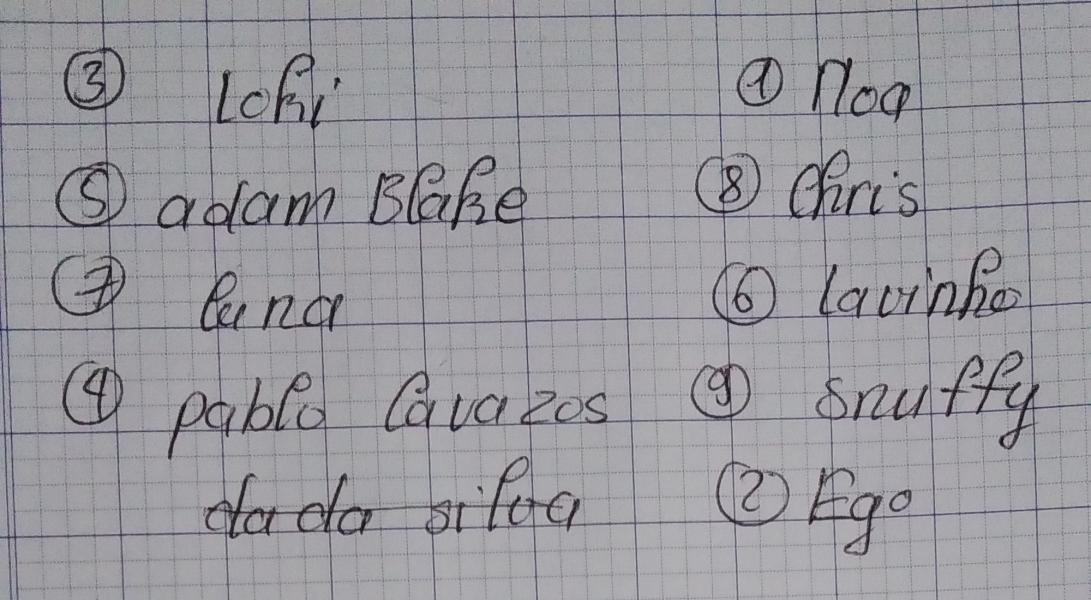 ③ Loki
⑤ adam Blake
⑦ luna
④ pablo Cavazos
dada silva
① Noa
⑧ Chris
⑥ lavinho
⑨ snuffy
② Ego